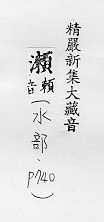 精嚴新集大藏音
瀬 音頼
(水部、p740)